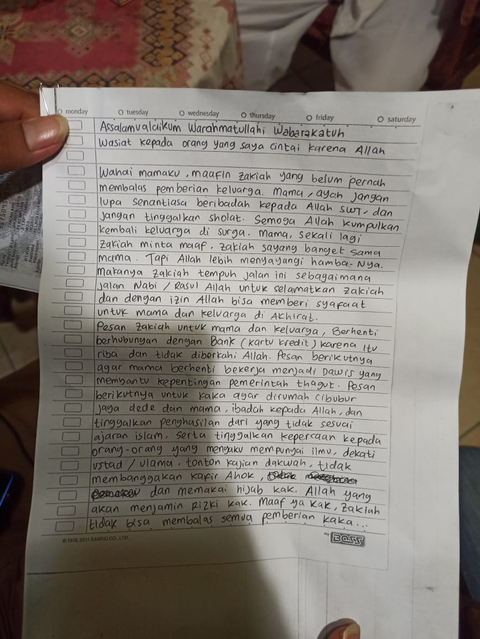 monday tuesday wednesday thursday friday saturday
Assalamualaikum Warahmatullahi Wabarakatuh
Wasiat kepada orang yang saya cintai karena Allah
Wahai mamaku, maafin zakiah yang belum pernah
membalas pemberian keluarga. Mama, ayah jangan
lupa senantiasa beribadah kepada Allah SWT, dan
jangan tinggalkan sholat. Semoga Allah kumpulkan
kembali keluarga di surga. Mama, sekali lagi
zakiah minta maaf, zakiah sayang banget sama
mama. Tapi Allah lebih menyayangi hamba-Nya.
makanya zakiah tempuh jalan ini sebagaimana
jalan Nabi / Rasul Allah untuk selamatkan zakiah
dan dengan izin Allah bisa memberi syafaat
untuk mama dan keluarga di Akhirat.
Pesan zakiah untuk mama dan keluarga, Berhenti
berhubungan dengan Bank (kartu kredit) karena itu
riba dan tidak diberkahi Allah. Pesan berikutnya
agar mama berhenti bekerja menjadi Dawis yang
membantu kepentingan pemerintah thagut. Pesan
berikutnya untuk kaka agar dirumah cibubur
jaga dede dan mama, ibadah kepada Allah, dan
tinggalkan penghasilan dari yang tidak sesuai
ajaran islam, serta tinggalkan keperc­aan kepada
orang-orang yang mengaku mempunyai ilmu, dekati
ustad / ulama, tonton kajian dakwah, tidak
membanggakan kafir Ahok,
dan memakai hijab kak. Allah yang
akan menjamin rizki kak. Maaf ya kak, zakiah
tidak bisa membalas semua pemberian kaka...
BOSS